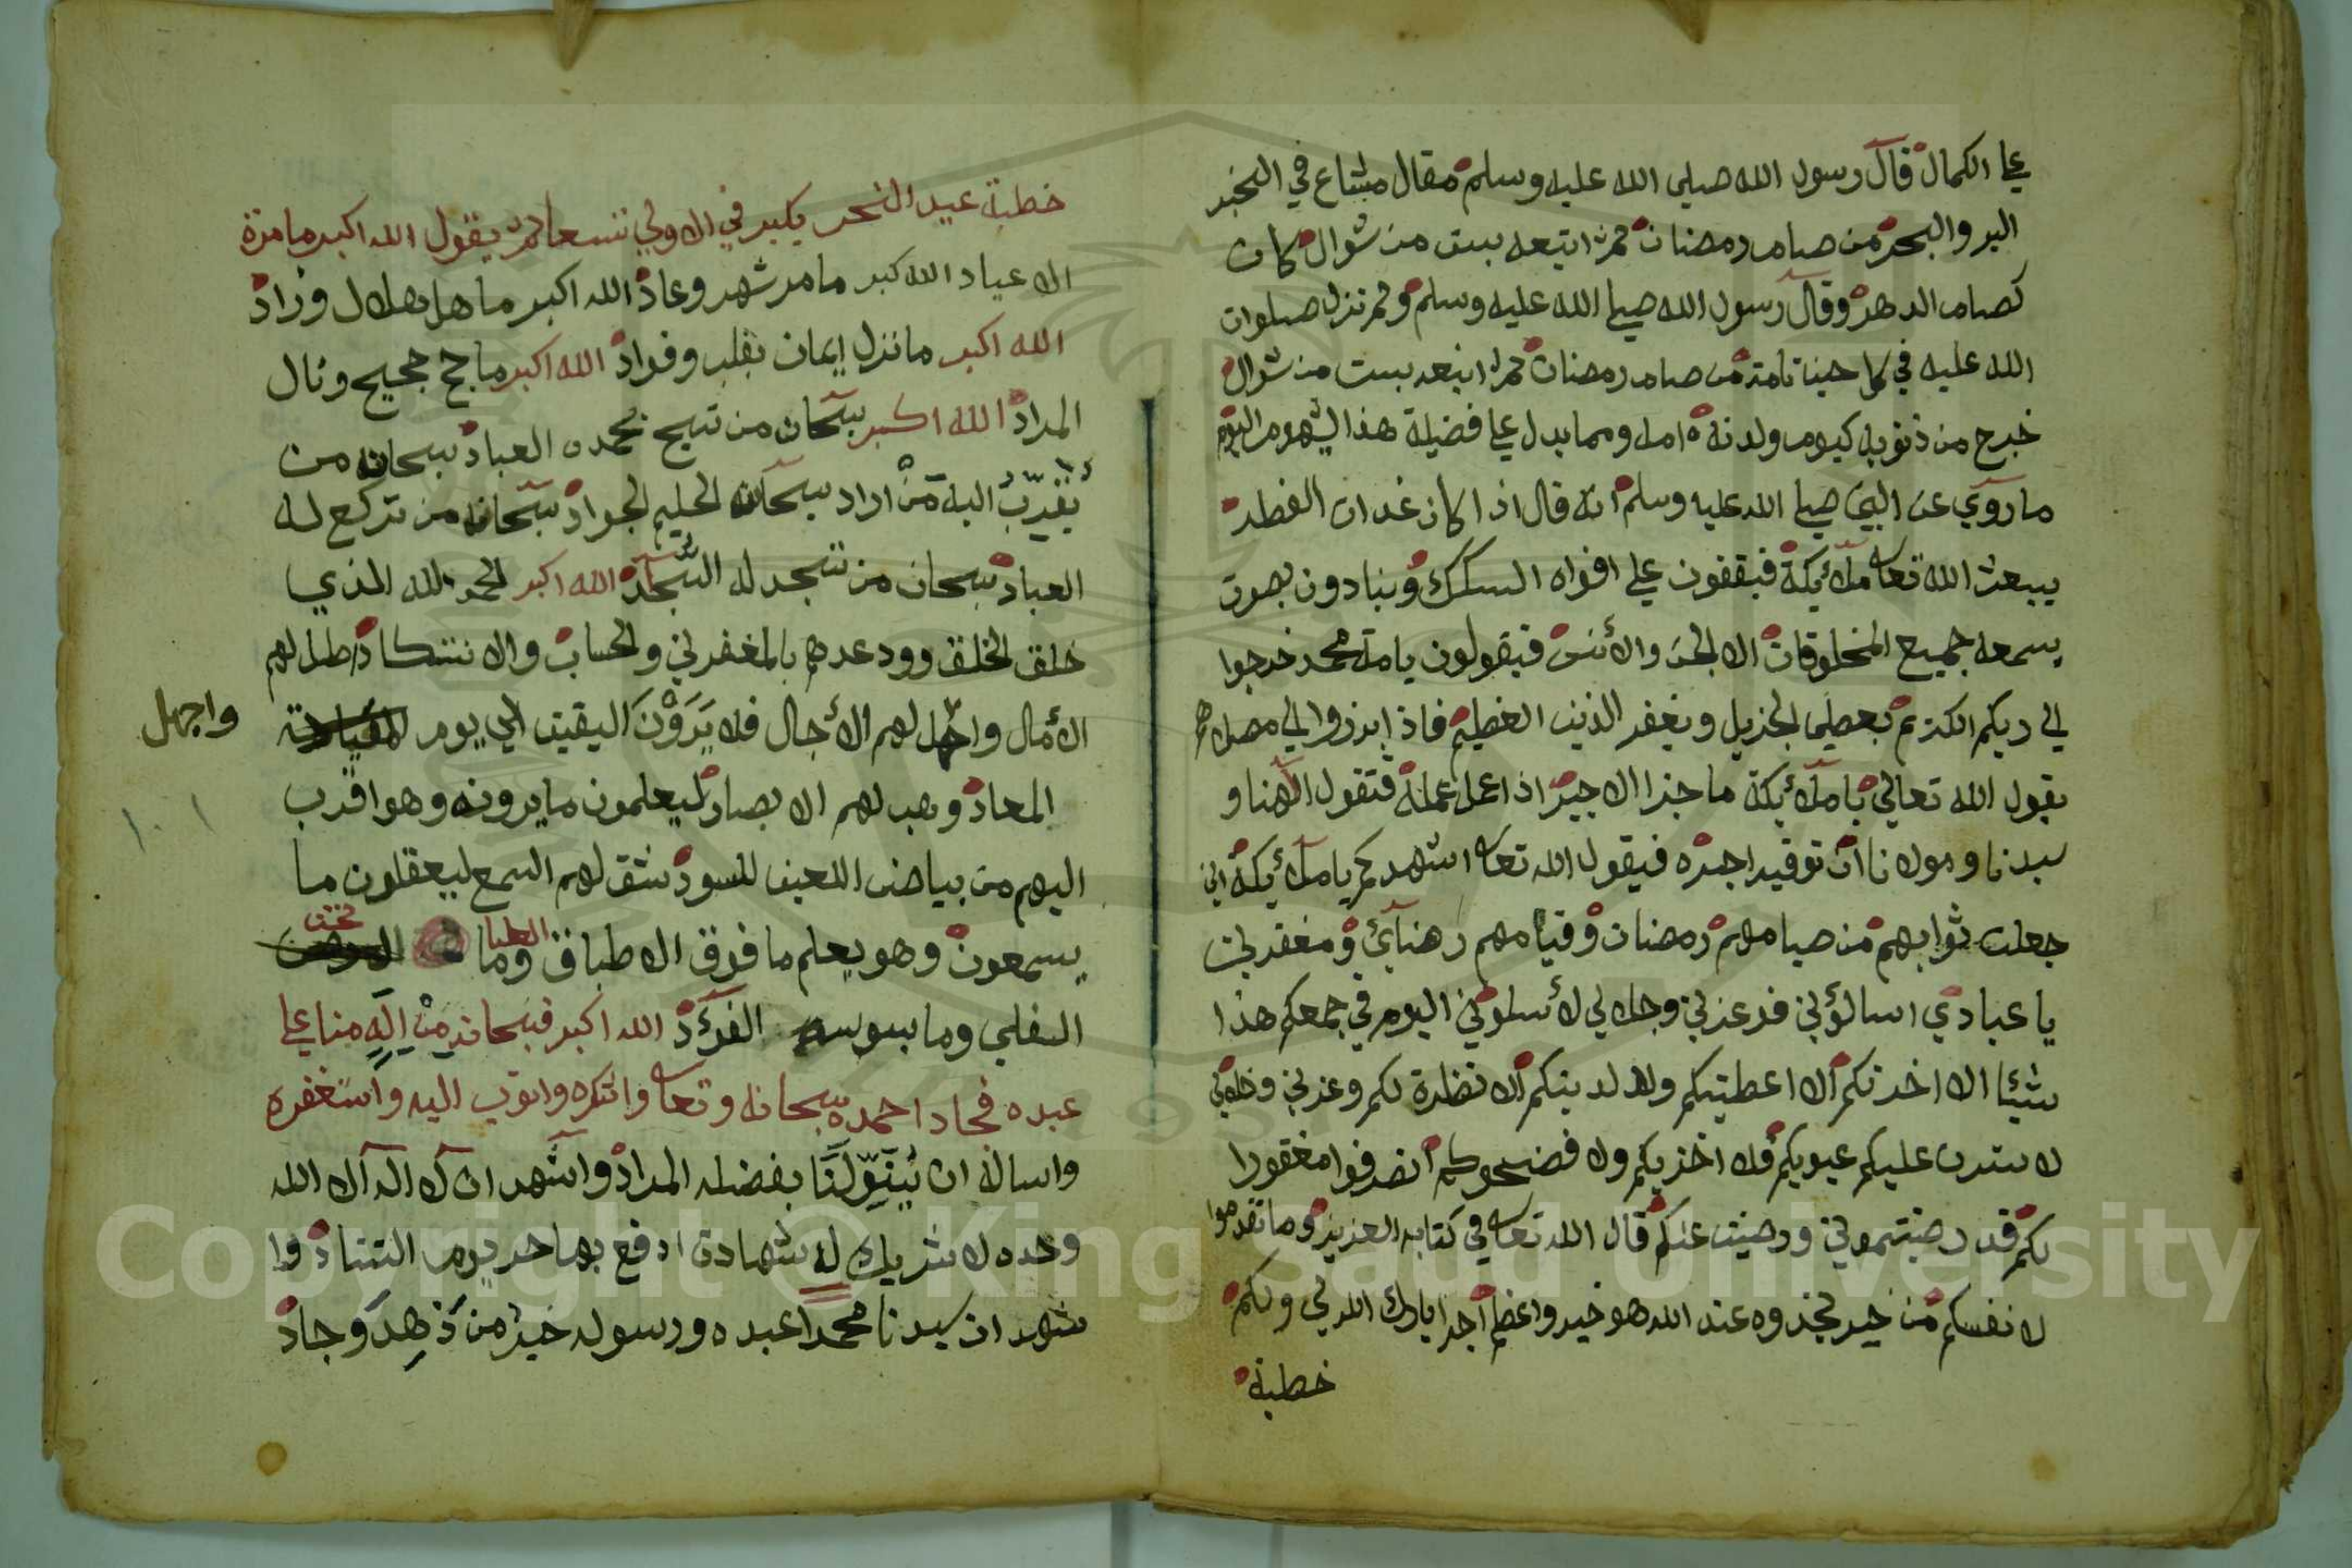 علي الكمال قال رسول الله صلي الله عليه وسلم مقال مشاع في الخبر
البر والبحر من صام رمضان ثمر اتبعه بست من شوال كان
كصام الدهر وقال رسول الله صلي الله عليه وسلم ولم تزل صلوات
الله عليه في كل حينا تامة من صام رمضان ثمر اتبعه بست من شوال
خرج من ذنوبه كيوم ولدته امه ومما يدل علي فضيلة هذا الشهر اليوم
ما روي عن النبي صلي الله عليه وسلم انه قال اذا كان غدات الفطر
يبعث الله تعا ملائكة فيقفون علي افواه السكك وينادون بصوت
يسمعه جميع المخلوقات الا الجن والأنس فيقولون يا امة محمد خرجوا
لي ربكم الكريم يعطي الجزيل ويغفر الذنب العظيم فاذا ابرزوا لي مصلاهم
يقول الله تعالي يا ملائكة ما جزا الاجير اذا عمل عمله فتقول الاهنا و
سيدنا ومولانا ان توفيه اجره فيقول الله تعا اشهدكم يا ملائكة اني
جعلت ثوابهم من صيامهم رمضان وقيامهم رضائي ومغفرتي
يا عبادي اسالؤني فوعزتي وجلالي لا سلوني اليوم في جمعكم هذا
شيئا الا اخرتكم الا اعطيتكم ولا لدينكم الا نظرة لكم وعزتي وجلالي
لا سترن عليكم عيوبكم فلا اخزيكم ولا فضحوكم انصرفوا مغفورا
لكم قد رضيتموني ورضيت عنكم قال الله تعا في كتابه العزيز وما تقدموا
لا نفسكم من خير تجذوه عند الله هو خير واعظم اجرا بارك الله لي ولكم
خطبة
خطبة عيد النحر يكبر في الاولي تسعا ثمر يقول الله اكبر ما مرة
الا عياد الله كبر ما مر شهر وعاد الله اكبر ما هل هلال وزاد
الله اكبر ما نزل ايمان بقلب وفواد الله اكبر ما حج حجيج ونال
المراد الله اكبر سبحان من تسبح بحمده العباد سبحان من
يقرب اليه من اراد سبحان الحليم الجواد سبحان من تركع له
العباد سبحان من تسجد له السجاد الله اكبر الحمد لله الذي
خلق الخلق ووعدهم بالمغفرتي والحساب والا نتكاد طل لهم
الأمال واجهل لهم الأجال فلا يرون اليقين الي يوم
واجهل
المعاد وهب لهم الا بصار ليعلمون ما يرونه وهو اقرب
اليهم من بياض العين للسود شق لهم السمع ليعقلون ما
يسمعون وهو يعلم ما فوق الا طباق وما تحت الطبا
السفلي وما يسوسه الفؤد الله اكبر فسبحانه من اله منا علي
عبده فجاد احمده سبحانه وتعا واشكره واتوب اليه واستغفره
واساله ان ينولنا بفضله المراد واشهد ان لا اله الا الله
وحده لا شريك له شهادة ادفع بها حر يوم التناد وا
شهد ان سيدنا محمدا عبده ورسوله خير من زهد وجاد
١٠١
Copyright © King Saud University